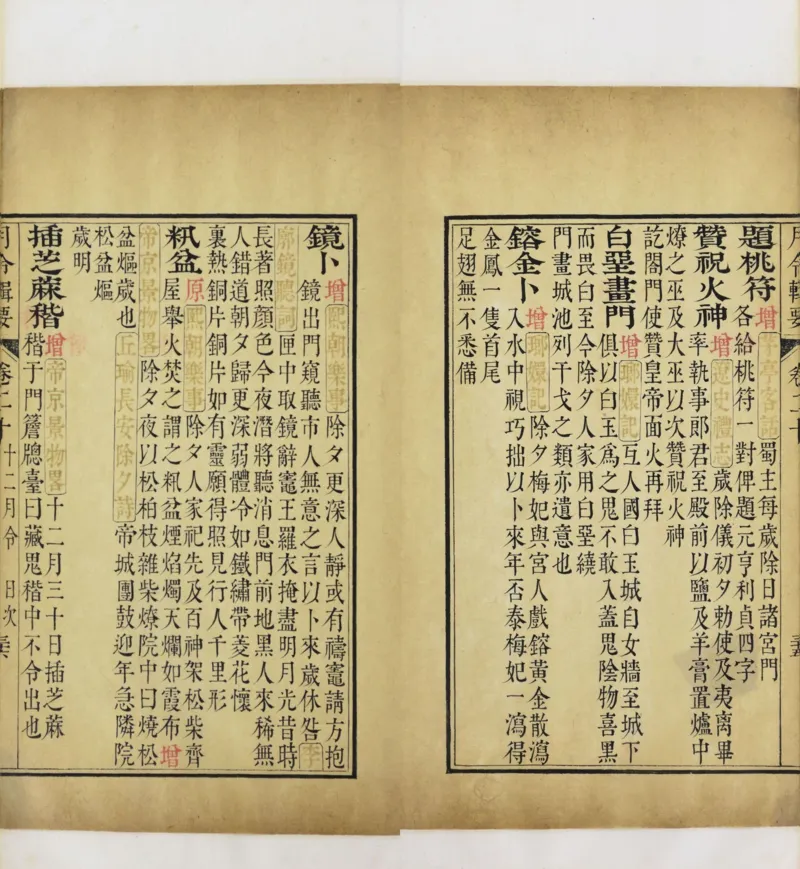 月令輯要
卷二十
題桃符
增茅亭客話蜀主每歲除日諸宮門
各給桃符一對俾題元亨利貞四字
贊祝火神
增遼史禮志歲除儀初夕勅使及夷离畢
率執事郎君至殿前以鹽及羊膏置爐中
燎之巫及大巫以次贊祝火神
訖閤門使贊皇帝面火再拜
白堊畫門
增瑯嬛記互人國白玉城自女牆至城下
俱以白玉爲之鬼不敢入蓋鬼陰物喜黑
而畏白至今除夕人家用白堊繞
門畫城池列干戈之類亦遺意也
鎔金卜
增瑯嬛記除夕梅妃與宮人戲鎔黃金散瀉
入水中視巧拙以卜來年否泰梅妃一瀉得
金鳳一隻首尾
足翅無不悉備
鏡卜
增熙朝樂事除夕更深人靜或有禱竈請方抱
鏡出門窺聽市人無意之言以卜來歲休咎李
廓鏡聽詞匣中取鏡辭竈王羅衣掩盡明月光昔時
長著照顏色今夜潛將聽消息門前地黑人來稀無
人錯道朝夕歸更深弱體冷如鐵繡帶菱花懷
裏熱銅片銅片如有靈願得照見行人千里形
籸盆
原熙朝樂事除夕人家祀先及百神架松柴齊
屋舉火焚之謂之籸盆煙焰燭天爛如霞布增
帝京景物畧除夕夜以松柏枝雜柴燎院中曰燒松
盆熰歲也丘瑜長安除夕詩帝城團鼓迎年急隣院
松盆熰
歲明
插芝蔴稭
增帝京景物畧十二月三十日插芝蔴
稭于門簷牕臺曰藏鬼稭中不令出也
月令輯要
卷二十
十二月令
日次